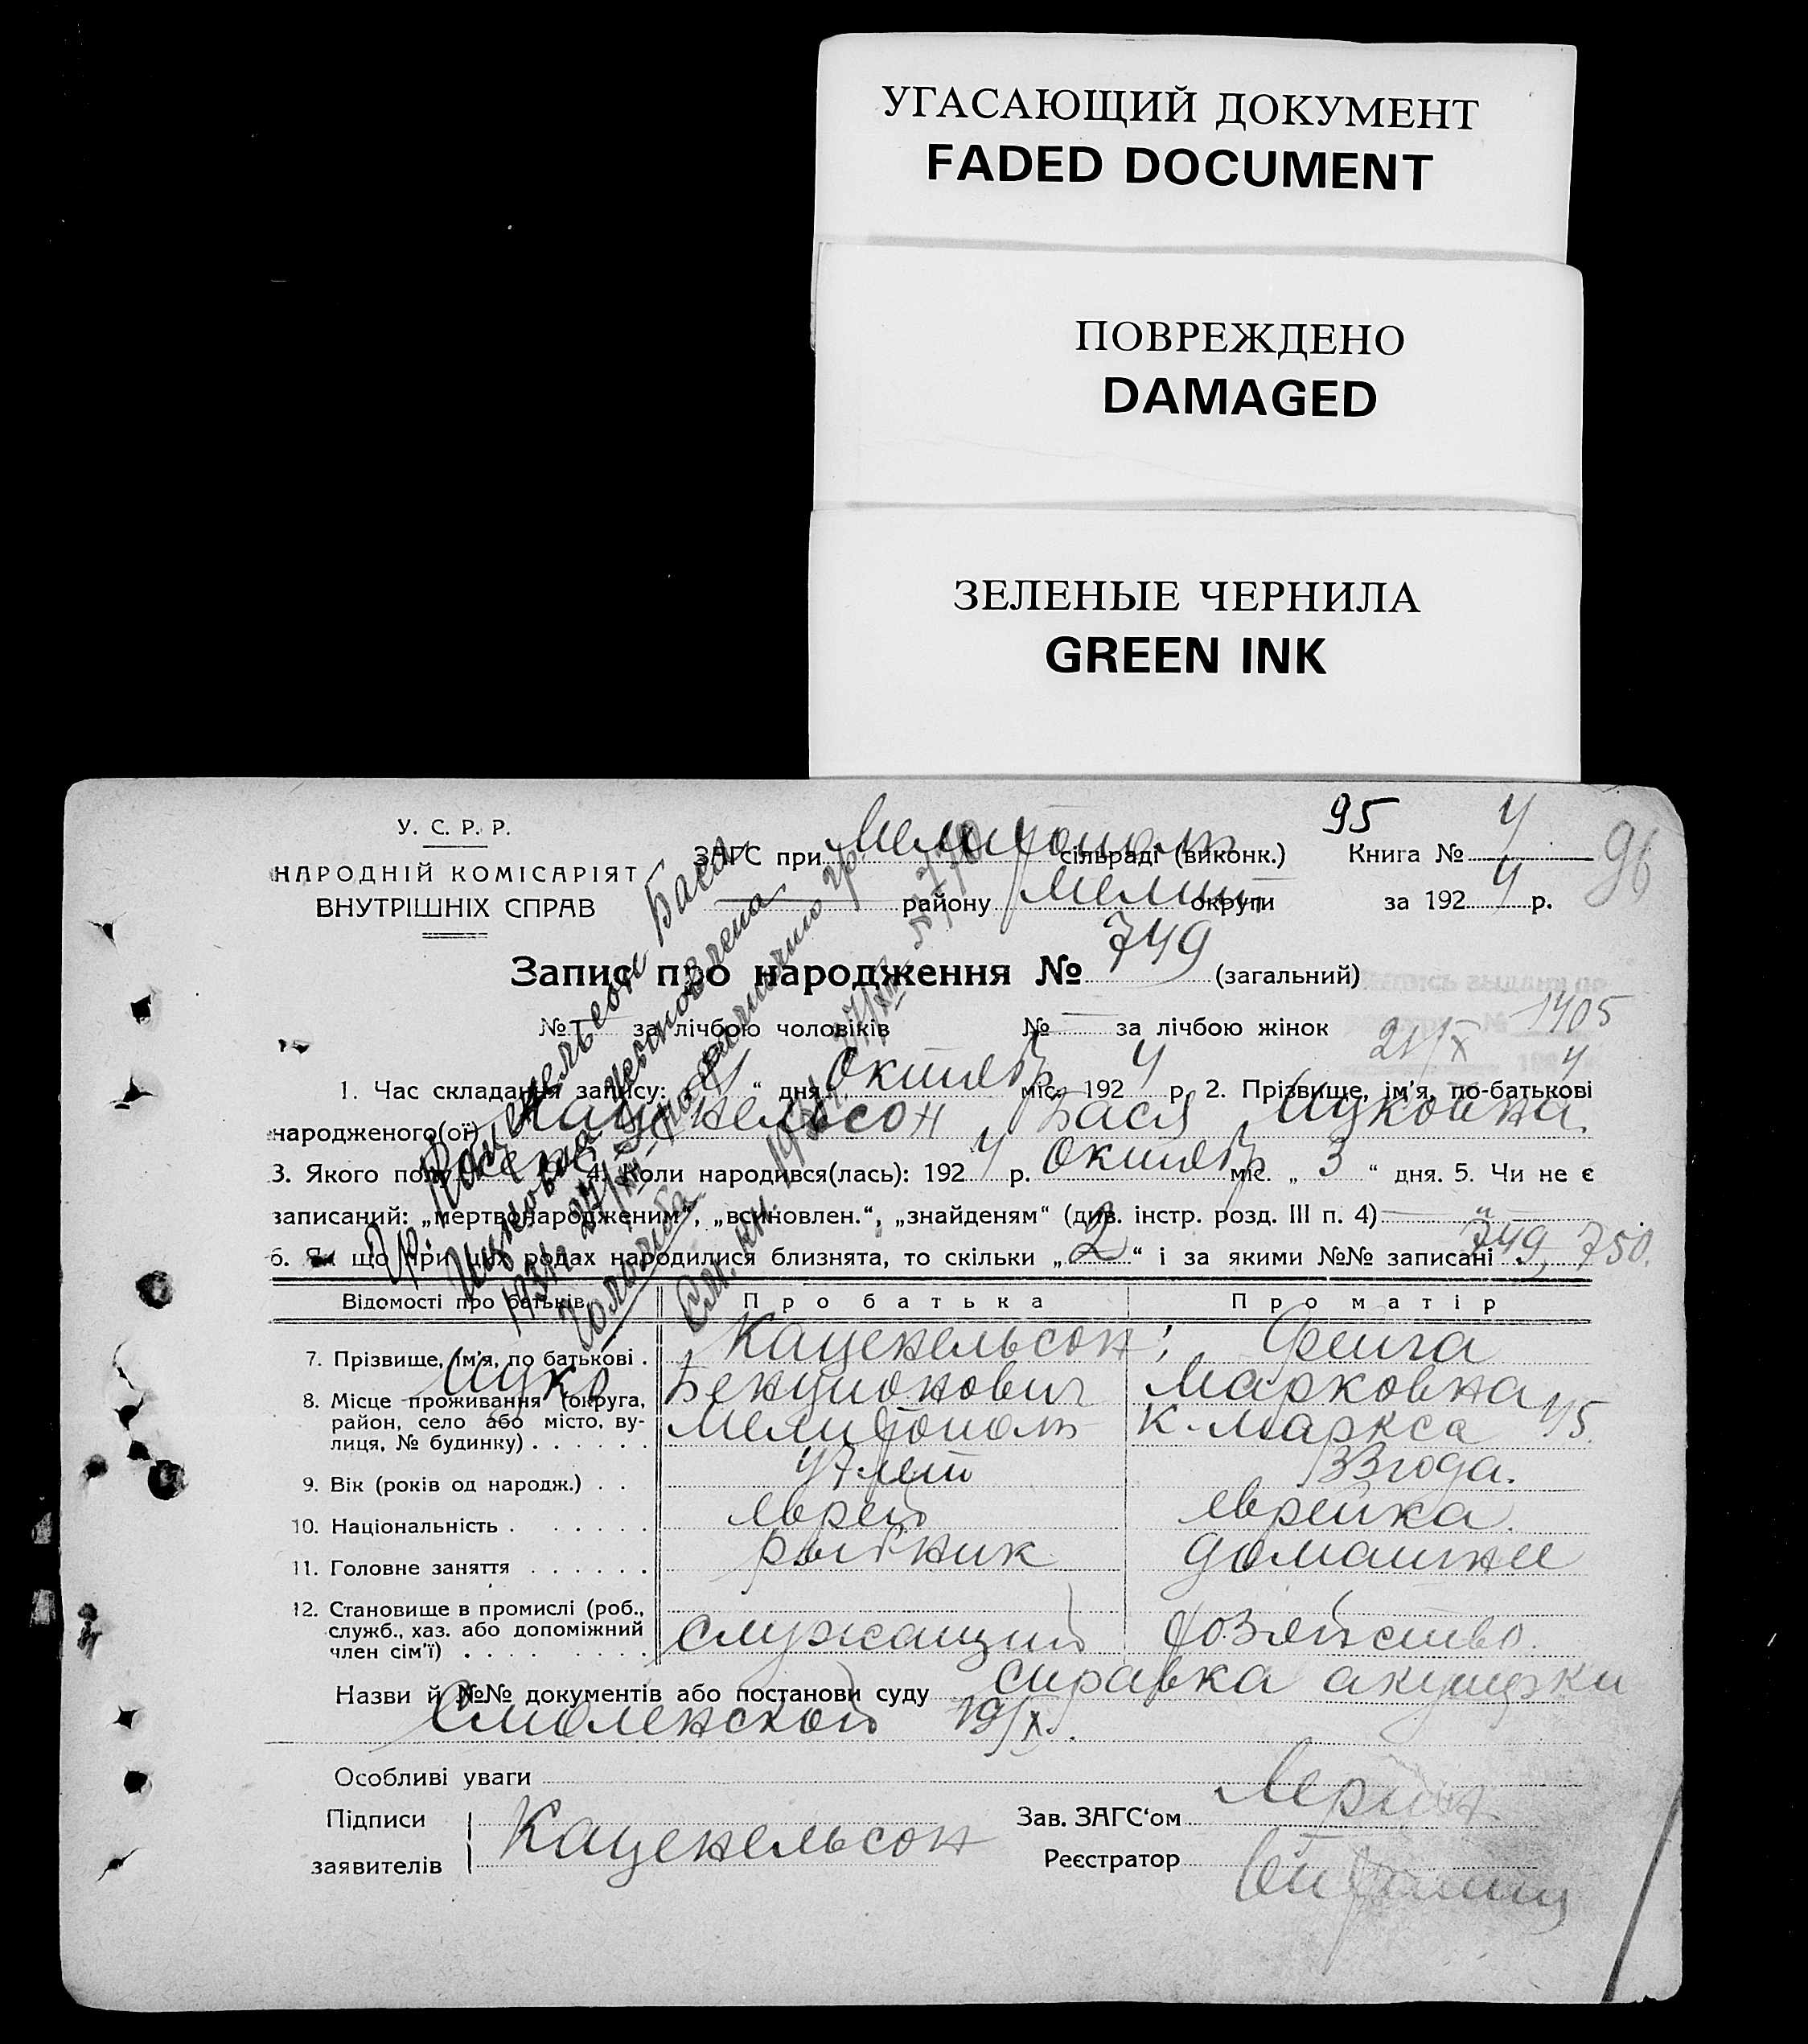 УГАСАЮЩИЙ ДОКУМЕНТ
FADED DOCUMENT
ПОВРЕЖДЕНО
DAMAGED
ЗЕЛЕНЫЕ ЧЕРНИЛА
GREEN INK
95
96
У. С. Р. Р.
НАРОДНІЙ КОМІСАРІЯТ
ВНУТРІШНІХ СПРАВ
ЗАГС при Мелитополь сільраді (виконк.) Книга № 4
району Мелит округи за 192 4 р.
Запис про народження № 749 (загальний)
№ за лічбою чоловіків № за лічбою жінок
1405
21/X 4
1. Час складання запису: 21 “ дня Октябр міс. 192 4 р. 2. Прізвище, ім’я, по-батькові
народженого(ої) Каценельсон Бася Ицковна.
3. Якого полу жен. 4. Коли народився(лась): 192 4 р. Октябр міс. „ 3 “ дня. 5. Чи не є
записаний: „мертвонародженим“, „всиновлен.“, „знайденям“ (див. інстр. розд. III п. 4) — „ —
6. Як що при цих родах народилися близнята, то скільки „ 2 “ і за якими №№ записані 749, 750.
Гр. Каценельсон Бася
Ицковна
См. кн. 1931
Відомості про батьків Про батька Про матір
7. Прізвище, ім’я, по батькові . Каценельсон; Фейга
Ицко Бенционович Марковна
8. Місце проживання (округа,
район, село або місто, ву-
лиця, № будинку) . . . . . . Мелитополь К. Маркса 45.
9. Вік (років од народж.) . . 47 лет 33 года.
10. Національність . . . . . . еврей еврейка.
11. Головне заняття . . . . . . рыбник домашнее
12. Становище в промислі (роб.,
служб., хаз. або допоміжний
член сім’ї) . . . . . . . служащий хозяйство.
Назви й №№ документів або постанови суду справка акушерки
Смоленской 19/X.
Особливі уваги
Підписи
заявителів Каценельсон
Зав. ЗАГС‘ом
Реєстратор